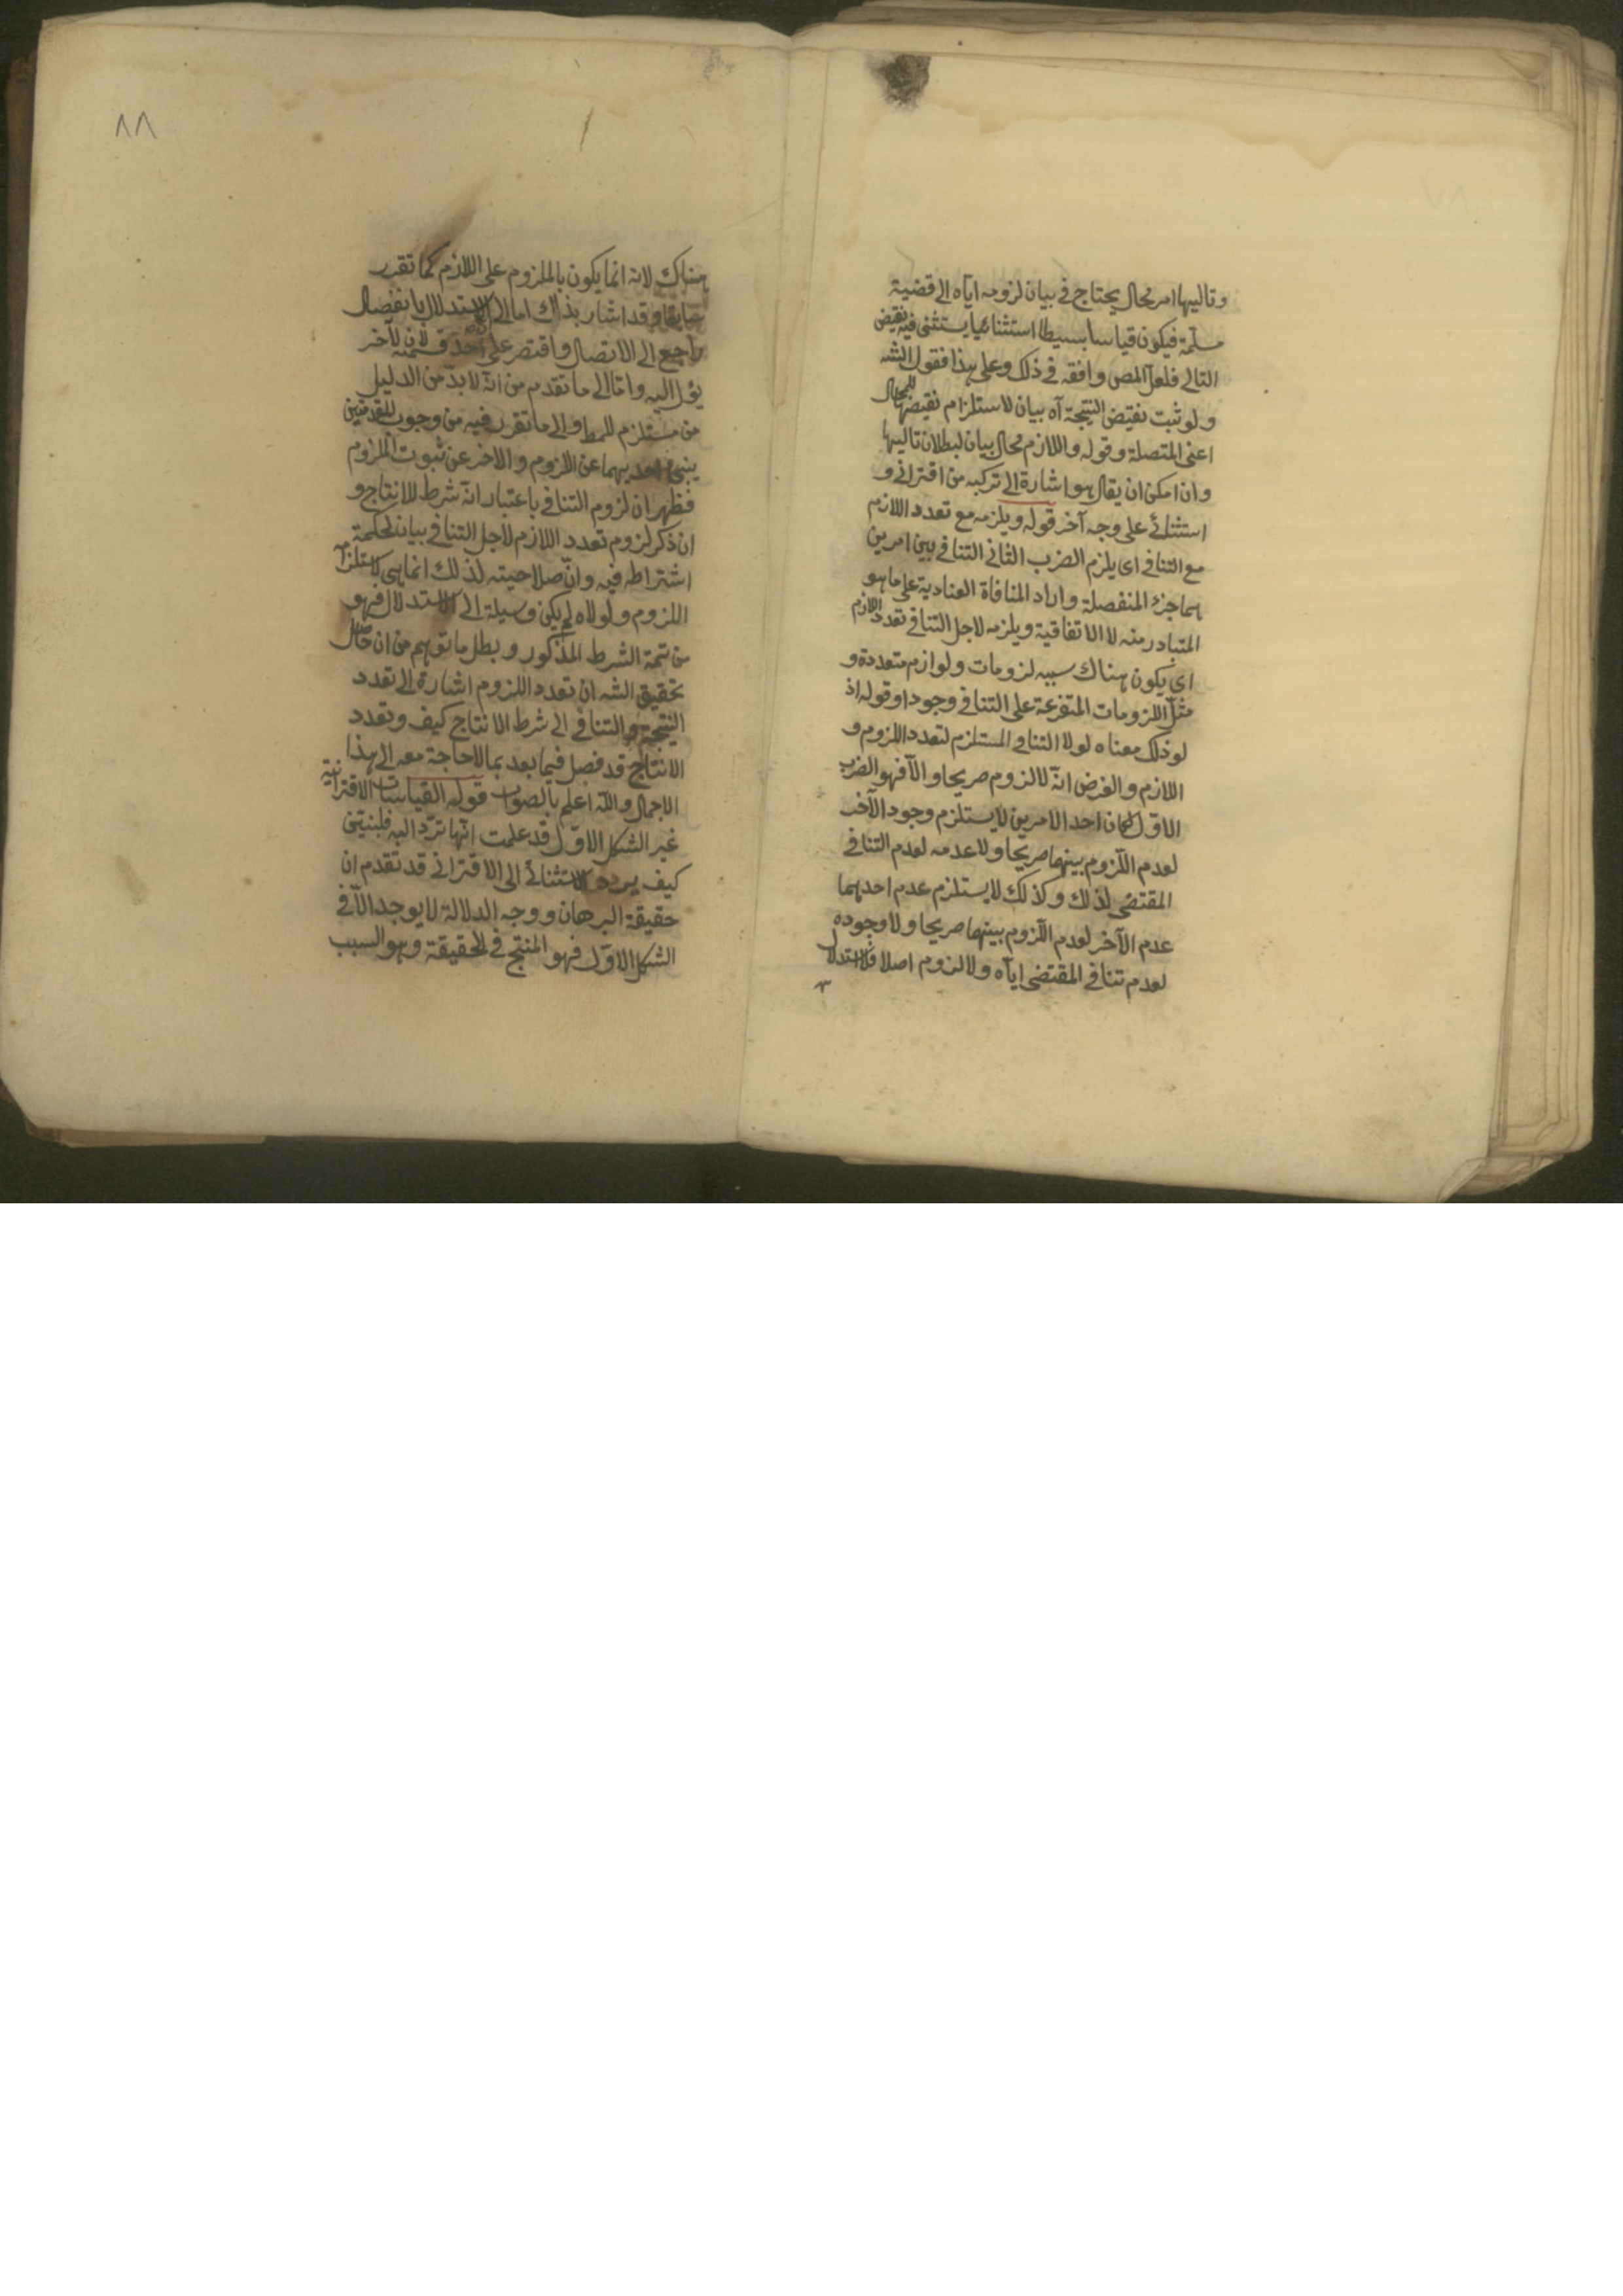 وتاليها امر محال يحتاج في بيان لزومه اياه الى قضية
مسلمة فيكون قياسا بسيطا استثنائيا يستثنى فيه نقيض
التالي فلعل المص وافقه في ذلك وعلى هذا فقول الشه
ولو ثبت نقيض النتيجة آه بيان لاستلزام نقيضها للمحال
اعنى المتصلة وقوله واللازم محال بيان لبطلان تاليها
وان امكن ان يقال هو اشارة الى تركبه من اقترانى و
استثنائى على وجه آخر قوله ويلزمه مع تعدد اللازم
مع التنافى اى يلزم الضرب الثانى التنافى بين امرين
هما جزء المنفصلة واراد المنافاة العنادية على ما هو
المتبادر منه لا الاتفاقية ويلزمه لاجل التنافى تعدد اللازم
اى يكون هناك سببه لزومات ولوازم متعددة و
مثل اللزومات المتفرعة على التنافى وجودا وقوله اذ
لو ذلك معناه لولا التنافى المستلزم لتعدد اللزوم و
اللازم والفرض انه لا لزوم صريحا والا فهو الضرب
الاول لكان احد الامرين لا يستلزم وجود الآخر
لعدم اللزوم بينهما صريحا ولا عدمه لعدم التنافى
المقتضى لذلك وكذلك لا يستلزم عدم احدهما
عدم الآخر لعدم اللزوم بينهما صريحا ولا وجوده
لعدم تنافى المقتضى اياه ولا لزوم اصلا فلا استدلال
٨٨
هناك لانه انما يكون بالملزوم على اللازم كما تقرر
سابقا وقد اشار بذاك اما الى الاستدلال بانفصال
راجع الى الاتصال واقتصر على احد قسميه لان الآخر
يؤل اليه واما الى ما تقدم من انه لا بد من الدليل
من مستلزم للمط والى ما تقرر فيه من وجوب المقدمتين
ينبئ احديهما عن اللزوم والاخر عن ثبوت الملزوم
فظهر ان لزوم التنافى باعتبار انه شرط للانتاج و
ان ذكر لزوم تعدد اللازم لاجل التنافى بيان لحكمة
اشتراطه فيه وان صلاحيته لذلك انما هى لاستلزامه
اللزوم ولولاه لم يكن وسيلة الى الاستدلال فهو
من تتمة الشرط المذكور وبطل ما توهم من ان حاصل
تحقيق الشه ان تعدد اللزوم اشارة الى تعدد
النتيجة والتنافى الى شرط الانتاج كيف وتعدد
الانتاج قد فصل فيما بعد بما لا حاجة معه الى هذا
الاجمال والله اعلم بالصواب قوله القياسات الاقترانية
غير الشكل الاول قد علمت انها ترد اليه فلنبين
كيف يرد الاستثنائى الى الاقترانى قد تقدم ان
حقيقة البرهان ووجه الدلالة لا يوجد الا فى
الشكل الاول فهو المنتج فى الحقيقة وهو السبب